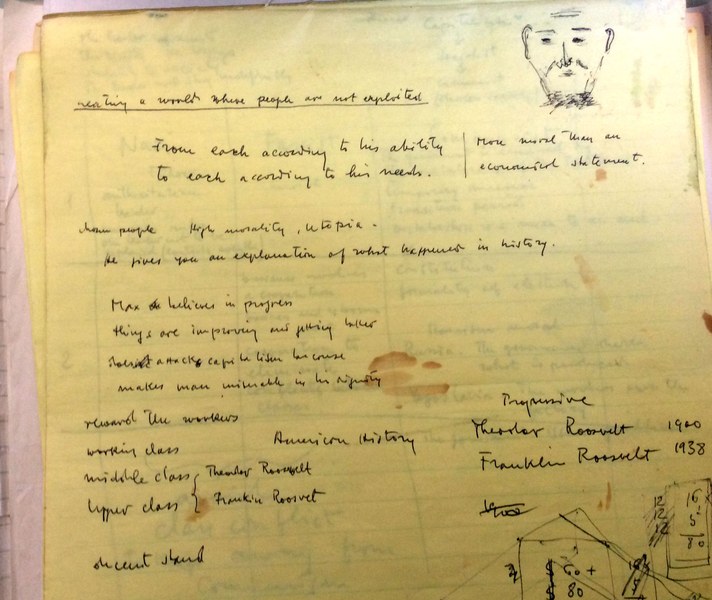 creating a world where people are not exploited
From each according to his ability
to each according to his needs.
More moral than an
economical statement.
people High morality, Utopia.
He gives you an explanation of what happened in history.
Max believes in progress
things are improving and getting better
attacks capitalism because
makes man miserable in his dignity
reward the workers
working class
middle class
Upper class
Theodor Roosvelt
Franklin Roosvet
American History
Progressive
Theodor Roosvelt 1900
Franklin Roosvelt 1938
1900
12
12
12
16
5
80
$ 60 +
$ 80